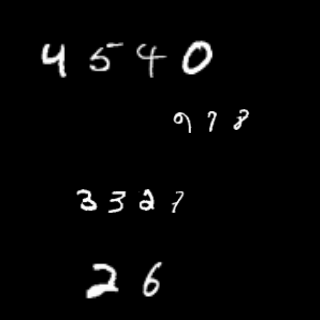 4540
978
3327
26